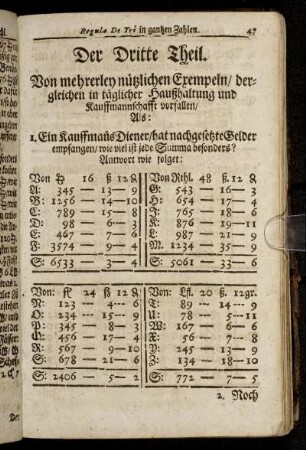 Regulæ De Tri in gantzen Zahlen. 47
Der Dritte Theil.
Von mehrerley nützlichen Exempeln/ der-
gleichen in täglicher Haußhaltung und
Kauffmannschafft vorfallen/
Als:
1. Ein Kauffmans Diener/hat nachgesetzte Gelder
empfangen/ wie viel ist jede Summa besonders?
Antwort wie folget:
Von 16 ß 12 ₰
A: 345 — 13 — 9
B: 1256 — 14 — 10
C: 789 — 15 — 8
D: 98 — 6 — 3
E: 467 — 8 — 6
F: 3574 — 9 — 4
S: 6533 — 3 — 4
Von Rthl. 48 ß 12 ₰
G: 543 — 16 — 3
H: 654 — 17 — 4
J: 765 — 18 — 6
K: 876 — 19 — 11
L: 987 — 21 — 9
M: 1234 — 35 — 9
S: 5061 — 33 — 6
Von fl 24 ßs 12 ₰
N: 123 — 4 — 6
O: 234 — 15 — 9
P: 345 — 8 — 3
Q: 456 — 17 — 4
R: 567 — 9 — 10
S: 678 — 21 — 6
S: 2406 — 5 — 2
Von: Lßl. 20 ß. 12gr.
T: 89 — 14 — 9
U: 78 — 5 — 11
W: 167 — 6 — 6
X: 56 — 7 — 8
Y: 245 — 13 — 10
Z: 134 — 18 — 9
S: 772 — 7 — 5
2. Noch